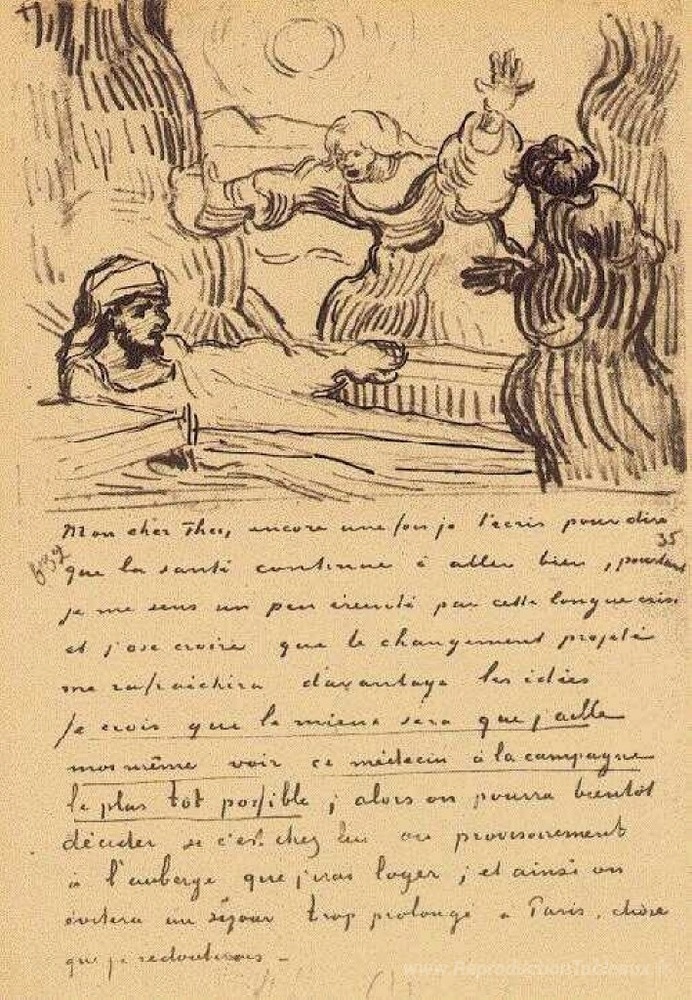 Mon cher Theo, encore une fois je t'écris pour dire
35
639
que la santé continue à aller bien, pourtant
je me sens un peu éreinté par cette longue crise
et j'ose croire que le changement projeté
me rafraichira davantage les idées
Je crois que le mieux sera que j'aille
moi même voir ce médecin à la campagne
le plus tôt possible ; alors on pourra bientôt
décider si c'est chez lui ou provisoirement
à l'auberge que j'irai loger ; et ainsi on
évitera un séjour trop prolongé à Paris, chose
que je redouterais –
www.ReproductionTableaux.fr